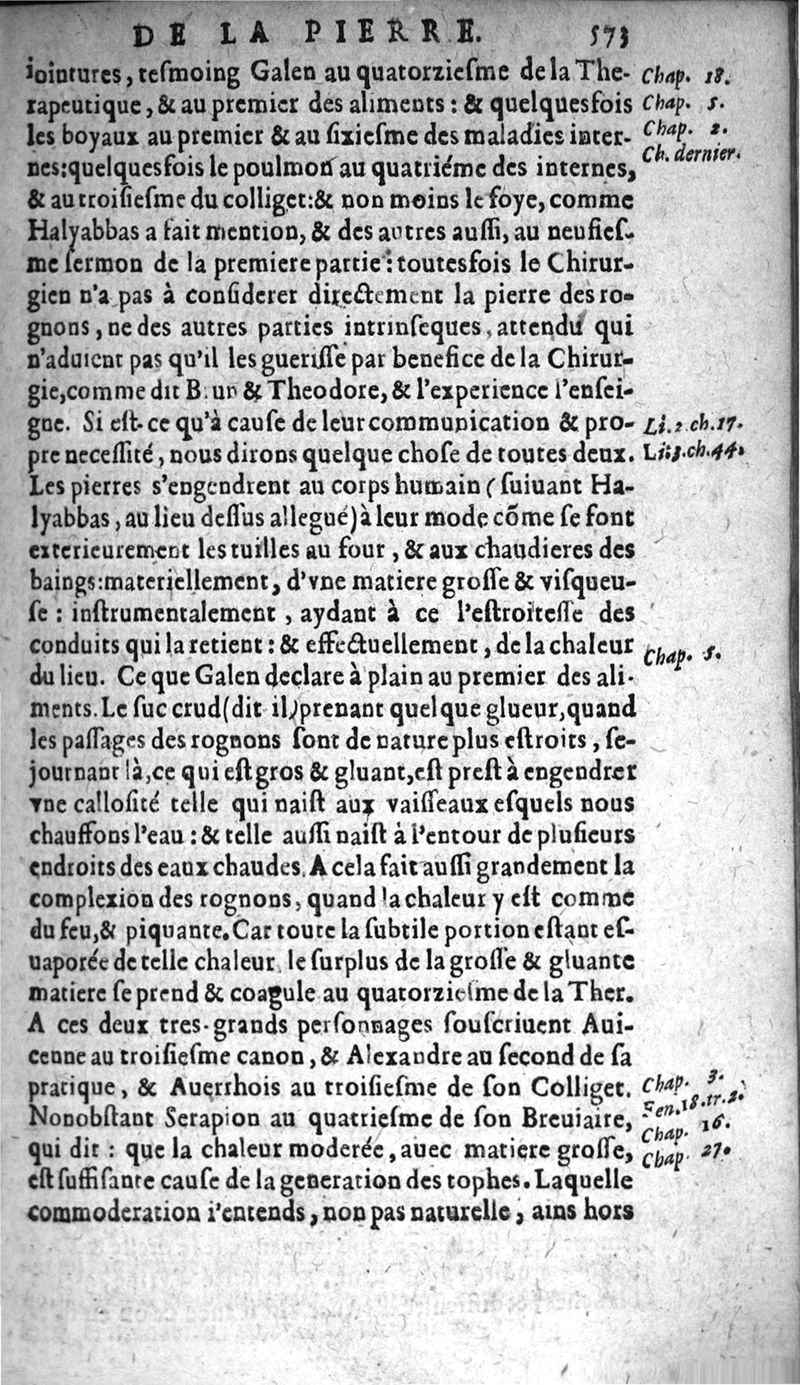 DE LA PIERRE. 573
iointures, tesmoing Galen au quatorziesme de la The- Chap. 18.
rapeutique, & au premier des aliments : & quelquesfois Chap. 5.
les boyaux au premier & au sixiesme des maladies inter- Chap. 2.
nes: quelquesfois le poulmon au quatriéme des internes, Ch. dernier.
& au troisiesme du colliget: & non moins le foye, comme
Halyabbas a fait mention, & des autres aussi, au neufies-
me sermon de la premiere partie : toutesfois le Chirur-
gien n'a pas à considerer directement la pierre des ro-
gnons, ne des autres parties intrinseques, attendu qui
n'aduient pas qu'il les guerisse par benefice de la Chirur-
gie, comme dit B un & Theodore, & l'experience l'ensei-
gne. Si est-ce qu'à cause de leur communication & pro- Li. 2 ch. 17.
pre necessité, nous dirons quelque chose de toutes deux. Li: 3. ch. 44.
Les pierres s'engendrent au corps humain ( suiuant Ha-
lyabbas, au lieu dessus allegué) à leur mode cõme se font
exterieurement les tuilles au four, & aux chaudieres des
baings: materiellement, d'vne matiere grosse & visqueu-
se : instrumentalement, aydant à ce l'estroitesse des
conduits qui la retient : & effectuellement, de la chaleur
du lieu. Ce que Galen declare à plain au premier des ali- Chap. 5.
ments. Le suc crud (dit il,) prenant quelque glueur, quand
les passages des rognons sont de nature plus estroits, se-
journant là, ce qui est gros & gluant, est prest à engendrer
vne callosité telle qui naist aux vaisseaux esquels nous
chauffons l'eau : & telle aussi naist à l'entour de plusieurs
endroits des eaux chaudes. A cela fait aussi grandement la
complexion des rognons, quand la chaleur y est comme
du feu, & piquante. Car toute la subtile portion estant es-
uaporée de telle chaleur, le surplus de la grosse & gluante
matiere se prend & coagule au quatorziesme de la Ther.
A ces deux tres-grands personnages souscriuent Aui-
cenne au troisiesme canon, & Alexandre au second de sa
pratique, & Auerrhois au troisiesme de son Colliget. Chap. 3.
Nonobstant Serapion au quatriesme de son Breuiaire, Fen. 18. tr. 2.
Chap. 16.
qui dit : que la chaleur moderée, auec matiere grosse, Chap. 27.
est suffisante cause de la generation des tophes. Laquelle
commoderation i'entends, non pas naturelle, ains hors